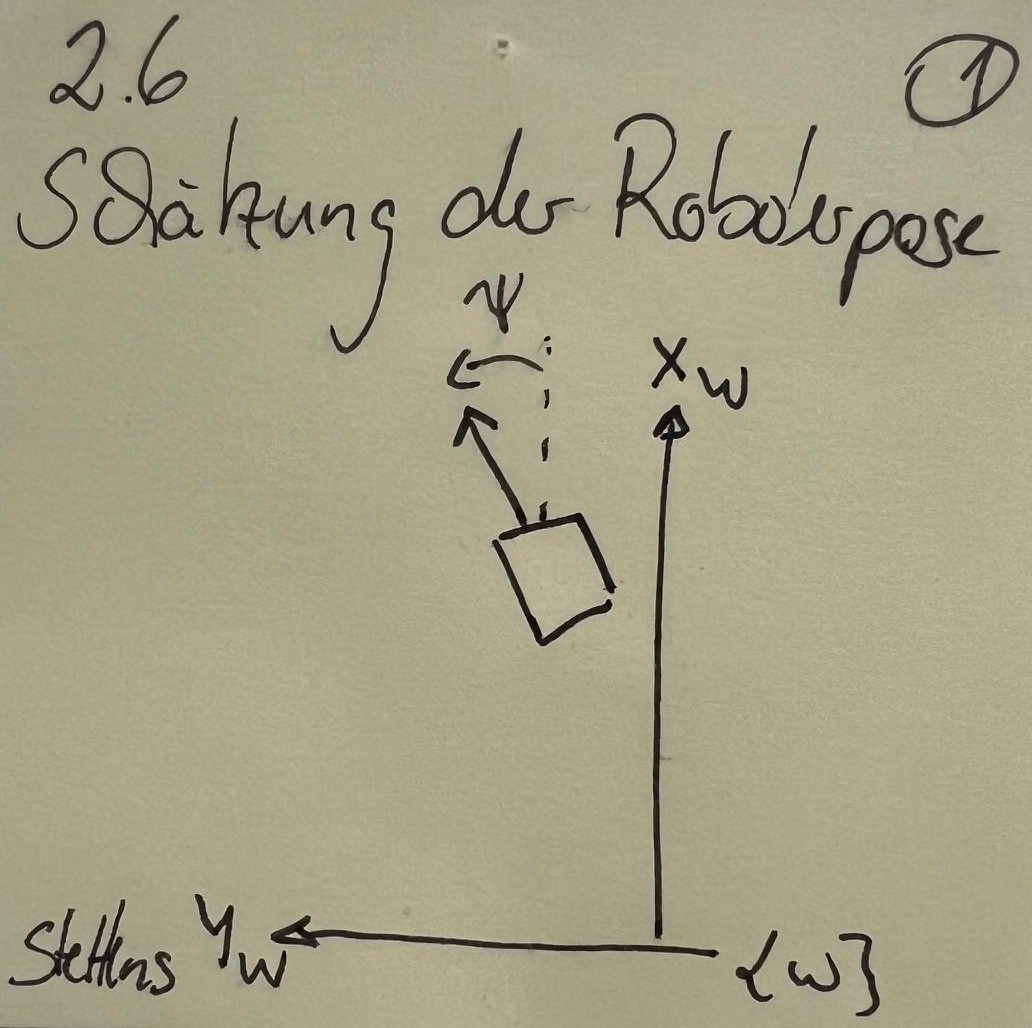 2.6
①
Schätzung der Roboterpose
ψ
X_W
Y_W
{W}